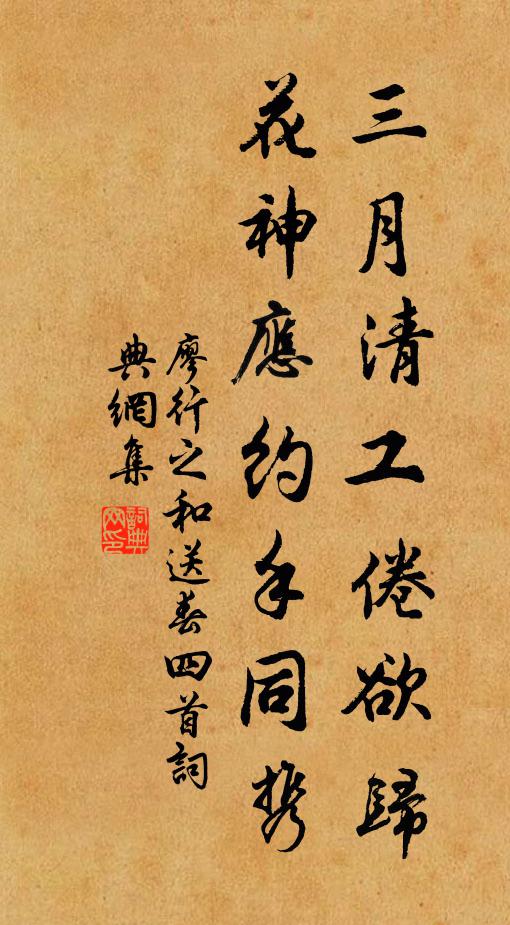 三月清工倦欲歸
花神應約手同携
廖行之和送春四首詞
典網集
詞典網印